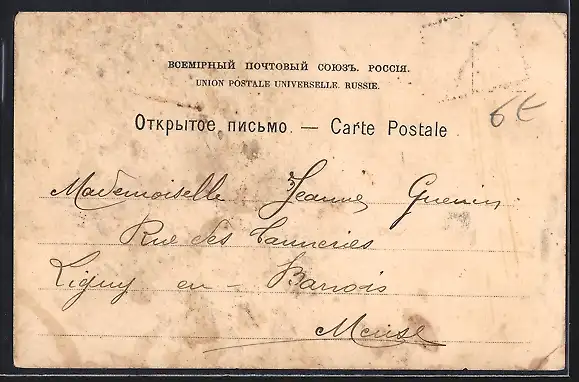 ВСЕМІРНЫЙ ПОЧТОВЫЙ СОЮЗЪ. РОССІЯ.
UNION POSTALE UNIVERSELLE. RUSSIE.
6€
Открытое письмо. — Carte Postale
Mademoiselle Jeanne Guenin
Rue des Tanneries
Ligny en - Barrois
Meuse